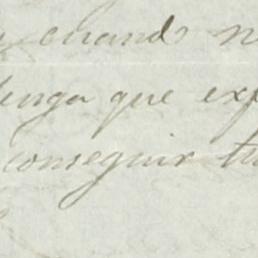 y cuando n
tenga que exp
conseguir tu